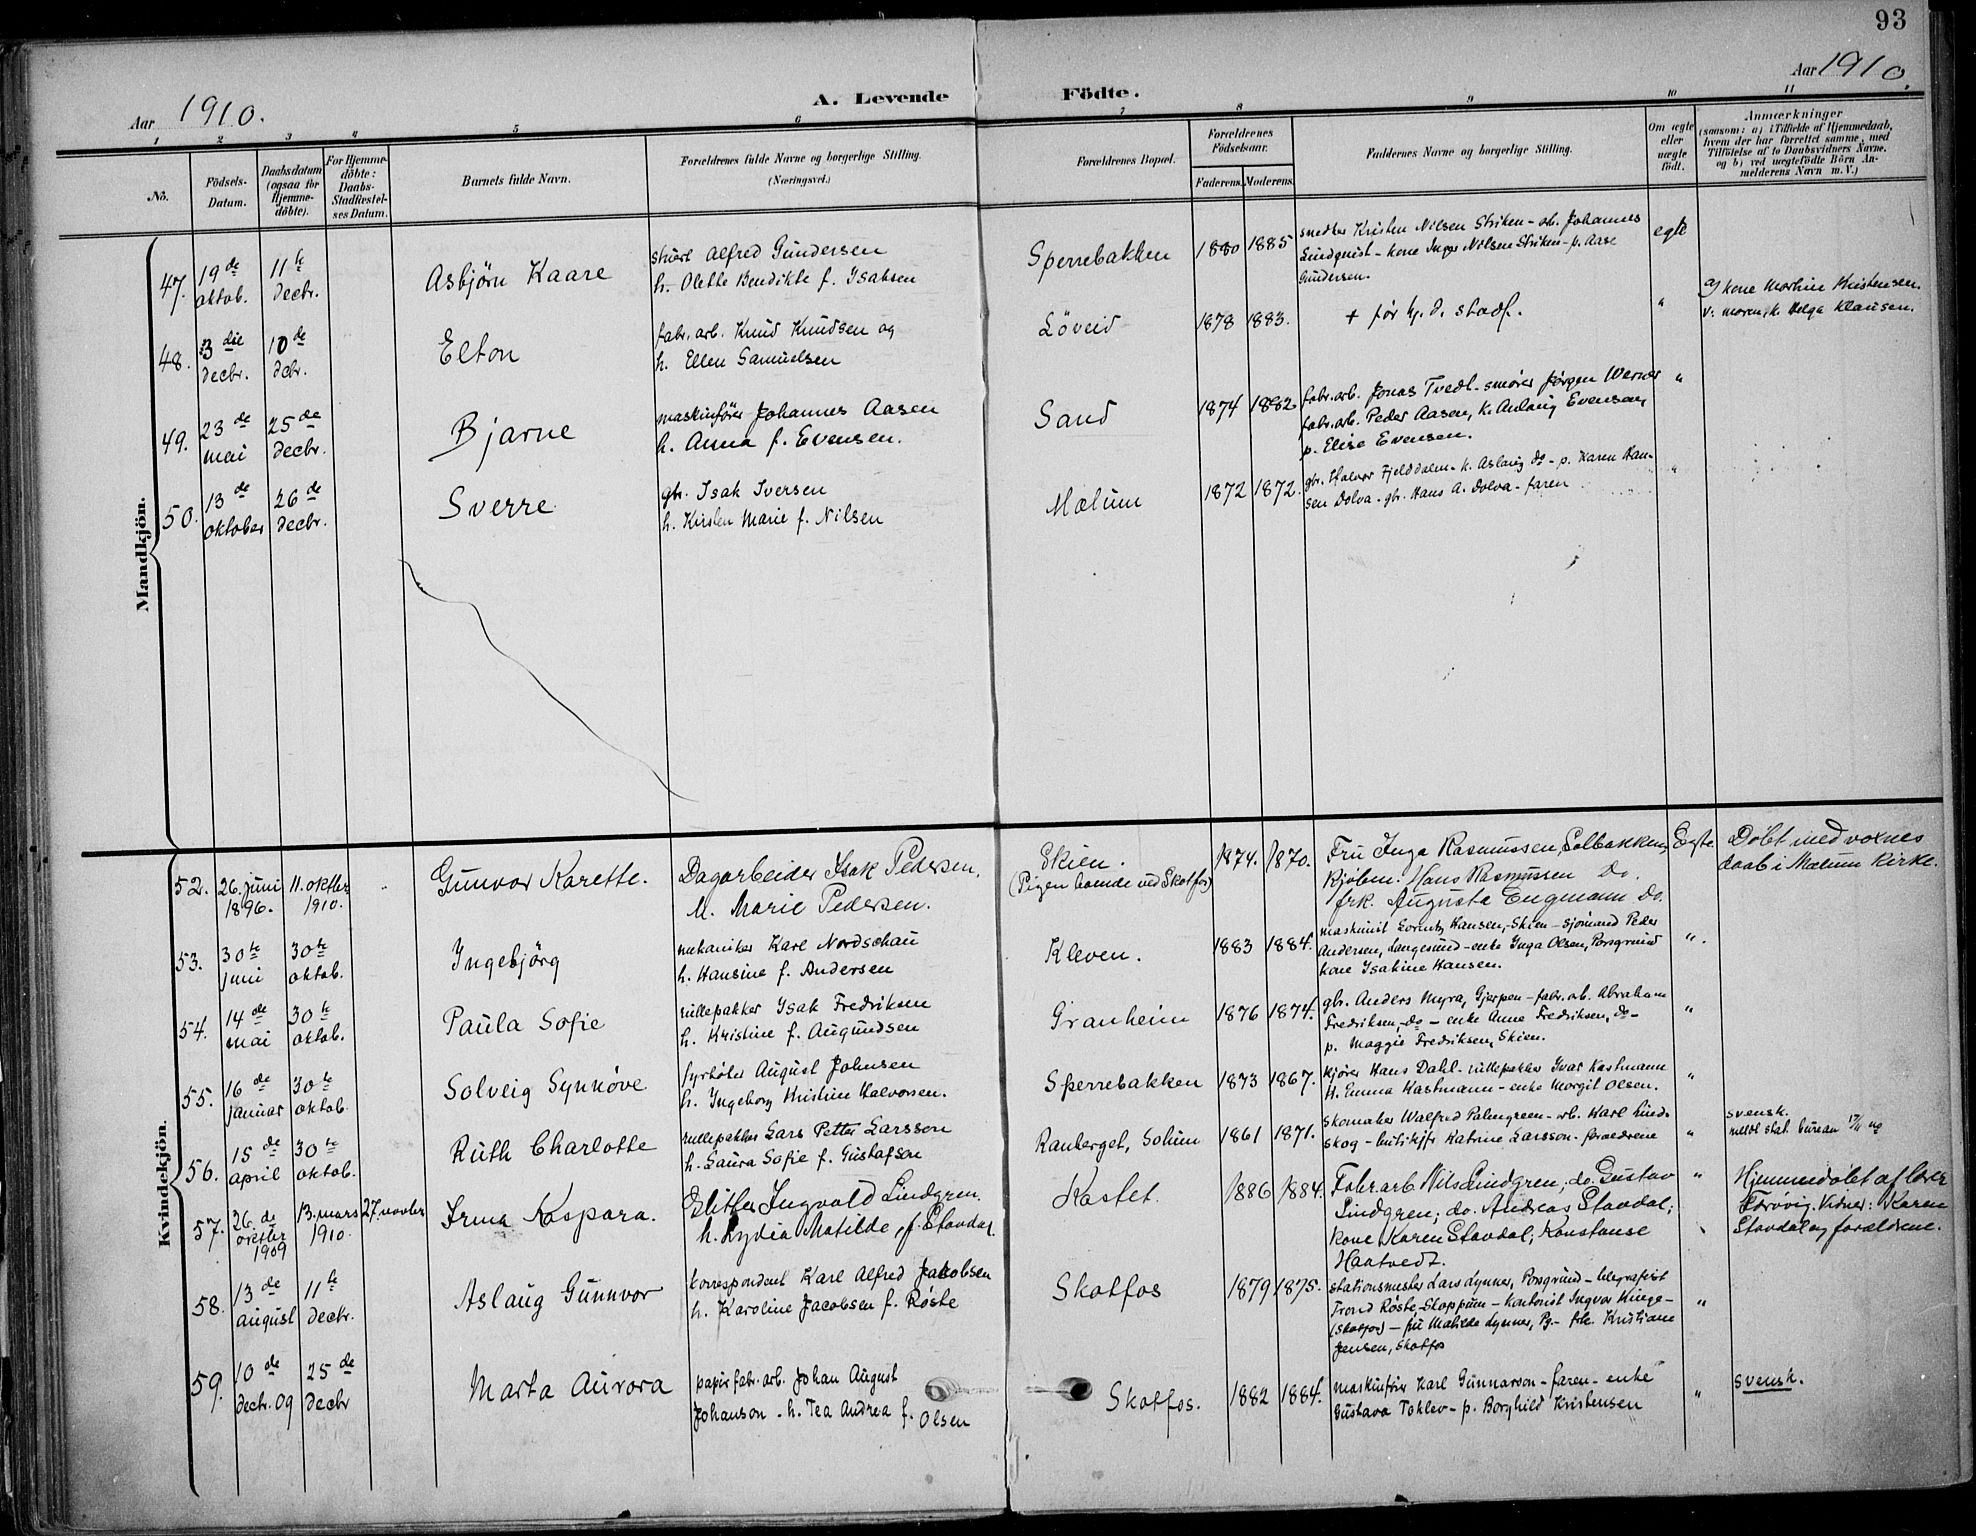 93
Aar 1910.
A. Levende Födte.
Aar 1910.
1 2 3 4 5 6 7 8 9 10 11
No.
Födsels-Datum.
Daabsdatum (ogsaa for Hjemme-döbte).
For Hjemme-döbte: Daabs-Stadfæstel-ses Datum.
Barnets fulde Navn.
Forældrenes fulde Navne og borgerlige Stilling.
(Næringsvei.)
Forældrenes Bopæl.
Forældrenes Födselsaar.
Faderens. Moderens.
Faddernes Navne og borgerlige Stilling.
Om ægte eller uægte født.
Anmærkninger
(saasom: a) i Tilfælde af Hjemmedaab,
hvem der har forrettet samme, med
Tilföielse af to Daabsvidners Navne,
og b) ved uægtefödte Börn An-
melderens Navn m. V.)
Mandkjön.
47. 19de oktob. 11te decbr. Asbjörn Kaare
Alfred Gundersen
h. Olette Bendikte f. Isaksen
Sperrebakken 1880 1885
smed Kristen Nilsen Striken - arb. Johannes
Lindquist - kone Inga Nilsen Striken - p. Aase
Gundersen.
egte
48. 3die decbr. 10de dcbr. Elton
fabr. arb. Knud Knudsen og
h. Ellen Samuelsen
Löveid 1878 1883.
+ för hj. d. stadf.
"
a) kone Martine Kristensen.
v: moren, k. Helga Klausen.
49. 23de mai 25de decbr. Bjarne
maskinförer Johannes Aasen
h. Anna f. Evensen.
Sand 1874 1882.
fabr. arb. Jonas Tvedt - smører Jørgen Werner
fabr. arb. Peder Aasen, k. Anlaug Evensen,
p. Elise Evensen.
"
50. 13de oktober 26de decbr. Sverre
gbr. Isak Iversen
h. Kirsten Marie f. Nilsen
Mælum 1872 1872.
gbr. Halvor Fjelddalen - k. Aslaug do - p. Karen Han-
sen Dolva - gbr. Hans A. Dolva - faren
"
Kvindekjön.
52. 26. juni 1896. 11. oktbr 1910. " Gunvor Karette.
Dagarbeider Isak Pedersen,
M. Marie Pedersen.
Skien.
(Pigen boende ved Skotfos)
1874. 1870.
Fru Inga Rasmussen, Solbakken,
Kjöbm. Hans Rasmussen Do.
frk. Augusta Engmann do.
Egte.
Döbt med voxnes
daab i Mælum kirke.
53. 30te juni 30te oktob. Ingebjörg
mekaniker Karl Nordschau
h. Hansine f. Andersen
Kleven. 1883 1884.
maskinist Lorentz Hansen, Skien - sjömand Peder
Andersen, Langesund - enke Inga Olsen, Porsgrund
kone Isakine Hansen.
"
54. 14de mai 30te oktob. Paula Sofie
rullepakker Isak Fredriksen
h. Kristine f. Augundsen
Granheim 1876 1874.
gbr. Anders Myra, Gjerpen - fabr. ab. Abraham
Fredriksen, do - enke Anne Fredriksen, do -
p. Maggie Fredriksen, Skien.
"
55. 16de januar 30te oktob. Solveig Synnöve
fyrböter August Johnsen
h. Ingeborg Kristine Halvorsen.
Sperrebakken 1873 1867.
kjörer Hans Dahl - rullepakker Ivar Hartmann
k. Emma Hartmann - enke Margit Olsen.
"
56. 15de april 30te oktob. Ruth Charlotte
rullepakker Lars Petter Larsson
h. Laura Sofie f. Gustafsen
Rauberget, Solum 1861 1871.
skomaker Walfred Palmgreen - arb. Karl Lind-
skog - butikjfr Katrine Larsson - forældrene
"
svensk.
meldt stat. bureau 17/11 10
57. 26.de oktbr 1909 13. mars 1910. 27. novbr Irma Kaspara.
Sliper Ingvald Lindgren.
h. Lydia Matilde, f. Stavdal.
Kastet. 1886 1884.
Fabr. arb Nils Lindgren; do. Gustav
Lindgren; do. Andreas Stavdal;
kone Karen Stavdal; Konstanse
Haatvedt.
"
Hjemmedøbt af lærer
Førövig. Vidner: Karen
Stavdal og forældrene.
58. 13de august 11te decbr. Aslaug Gunnvor
korrespondent Karl Alfred Jakobsen
h. Karoline Jacobsen f. Røste
Skotfos 1879 1875.
stationsmester Lars Lynner, Porsgrund - telegrafist
Trond Røste, Skoppum - kontorist Ingvar Hinge -
(Skotfos) - fru Matilde Lynner, Pg. - frk. Kristiane
Jensen, Skotfos
"
59. 10de decbr. 09 25de decbr Marta Aurora
papirfabr. arb. Johan August
Johanson - h. Tea Andrea f. Olsen
Skotfos. 1882 1884.
maskinförer Karl Gunnarson - faren - enke
Gustava Toklev - p. Borghild Kristensen
"
svensk.